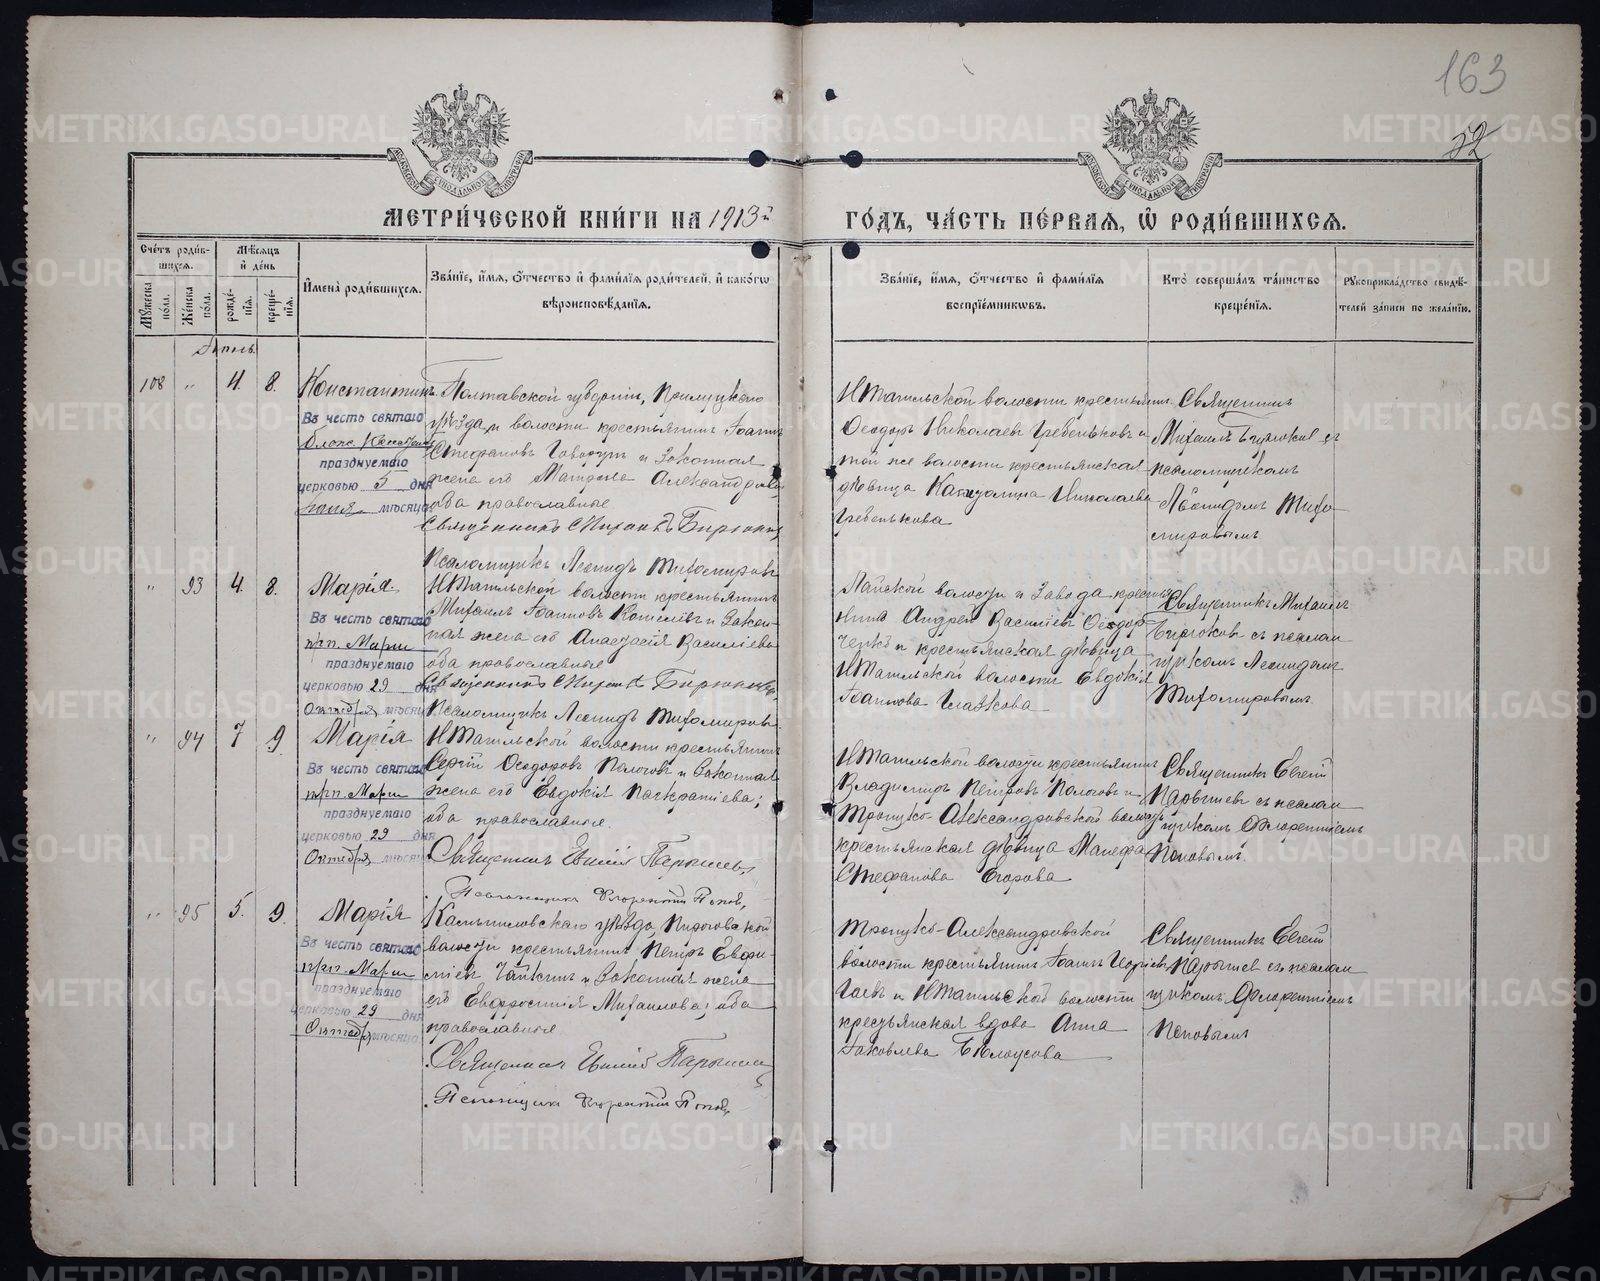 163
52
МЕТРИ́ЧЕСКОЙ КНИ́ГИ НА 1913й ГО́ДЪ, ЧА́СТЬ ПЕ́РВАЯ, Ѡ҆ РОДИ́ВШИХСЯ.
Сче́тъ роди́в-
шихся.
Мѣ́сяцъ
и҆ де́нь
Мꙋ́жеска по́ла.
Же́нска по́ла.
рожде́-нїѧ.
креще́-нїѧ.
И҆мена̀ роди́вшихсѧ.
Зва́нїе, и҆́мѧ, ѻ҆́тчество и҆ фами́лїѧ роди́телей, и҆ како́гѡ
вѣроисповѣ́данїѧ.
Зва́нїе, и҆́мѧ, ѻ҆́тчество и҆ фами́лїѧ
воспрїе́мниковъ.
Кто̀ соверша́лъ та́инство
креще́нїѧ.
Рꙋкоприкла́дство свидѣ́-
телей за́писи по жела́нїю.
Апрѣль
108 " 4. 8.
Константинъ
Въ честь святаго
празднуемаго
церковью 3 дня
Іюня мѣсяца
Полтавской губерніи, Прилуцкаго
уѣзда и волости крестьянинъ Іоаннъ
Стефановъ и законная
жена его Матрона Александрова
оба православные
Священникъ Михаилъ Бирюковъ
Псаломщикъ Леонидъ Тихомировъ
НТагильской волости крестьянинъ
Ѳеодоръ Николаевъ Гребеньковъ и
той же волости крестьянская
дѣвица Николаева
Гребенькова
Священникъ
Михаилъ Бирюковъ съ
псаломщикомъ
Леонидомъ Тихо-
мировымъ
" 93 4. 8.
Марія
Въ честь святаго
прп. Маріи
празднуемаго
церковью 29 дня
Октября мѣсяца
НТагильской волости крестьянинъ
Михаилъ Іоанновъ и закон-
ная жена его Анастасія Василіева
оба православные
Священникъ Михаилъ Бирюковъ
Псаломщикъ Леонидъ Тихомировъ
Лайской волости и завода крестья-
нинъ Андрей Василіевъ
и крестьянская дѣвица
НТагильской волости Евдокія
Іоаннова Глазкова
Священникъ Михаилъ
Бирюковъ съ псалом-
щикомъ Леонидомъ
Тихомировымъ
" 94 7 9.
Марія
Въ честь святаго
прп. Маріи
празднуемаго
церковью 29 дня
Октября мѣсяца
НТагильской волости крестьянинъ
Сергій Ѳеодоровъ Пологовъ и законная
жена его Евдокія Панкратіева;
оба православные.
Священникъ Евгеній Парышевъ
Псаломщикъ Флорентій Поповъ
НТагильской волости крестьянинъ
Владимиръ Петровъ Пологовъ и
Троицко-Александровской волости
крестьянская дѣвица Манефа
Стефанова Егорова
Священникъ Евгеній
Парышевъ съ псалом-
щикомъ Флорентіемъ
Поповымъ
" 95 5. 9.
Марія
Въ честь святаго
прп. Маріи
празднуемаго
церковью 29 дня
Октября мѣсяца
Камышловскаго уѣзда, Пироговской
волости крестьянинъ Петръ Евфи-
міевъ и законная жена
его Евфросинія Михаилова; оба
православные
Священникъ Евгеній Парышевъ
Псаломщикъ Флорентій Поповъ
Троицко-Александровской
волости крестьянинъ Іоаннъ Георгіевъ
Гаевъ и НТагильской волости
крестьянская вдова Анна
Іаковлева Бѣлоусова
Священникъ Евгеній
Парышевъ съ псалом-
щикомъ Флорентіемъ
Поповымъ
METRIKI.GASO-URAL.RU